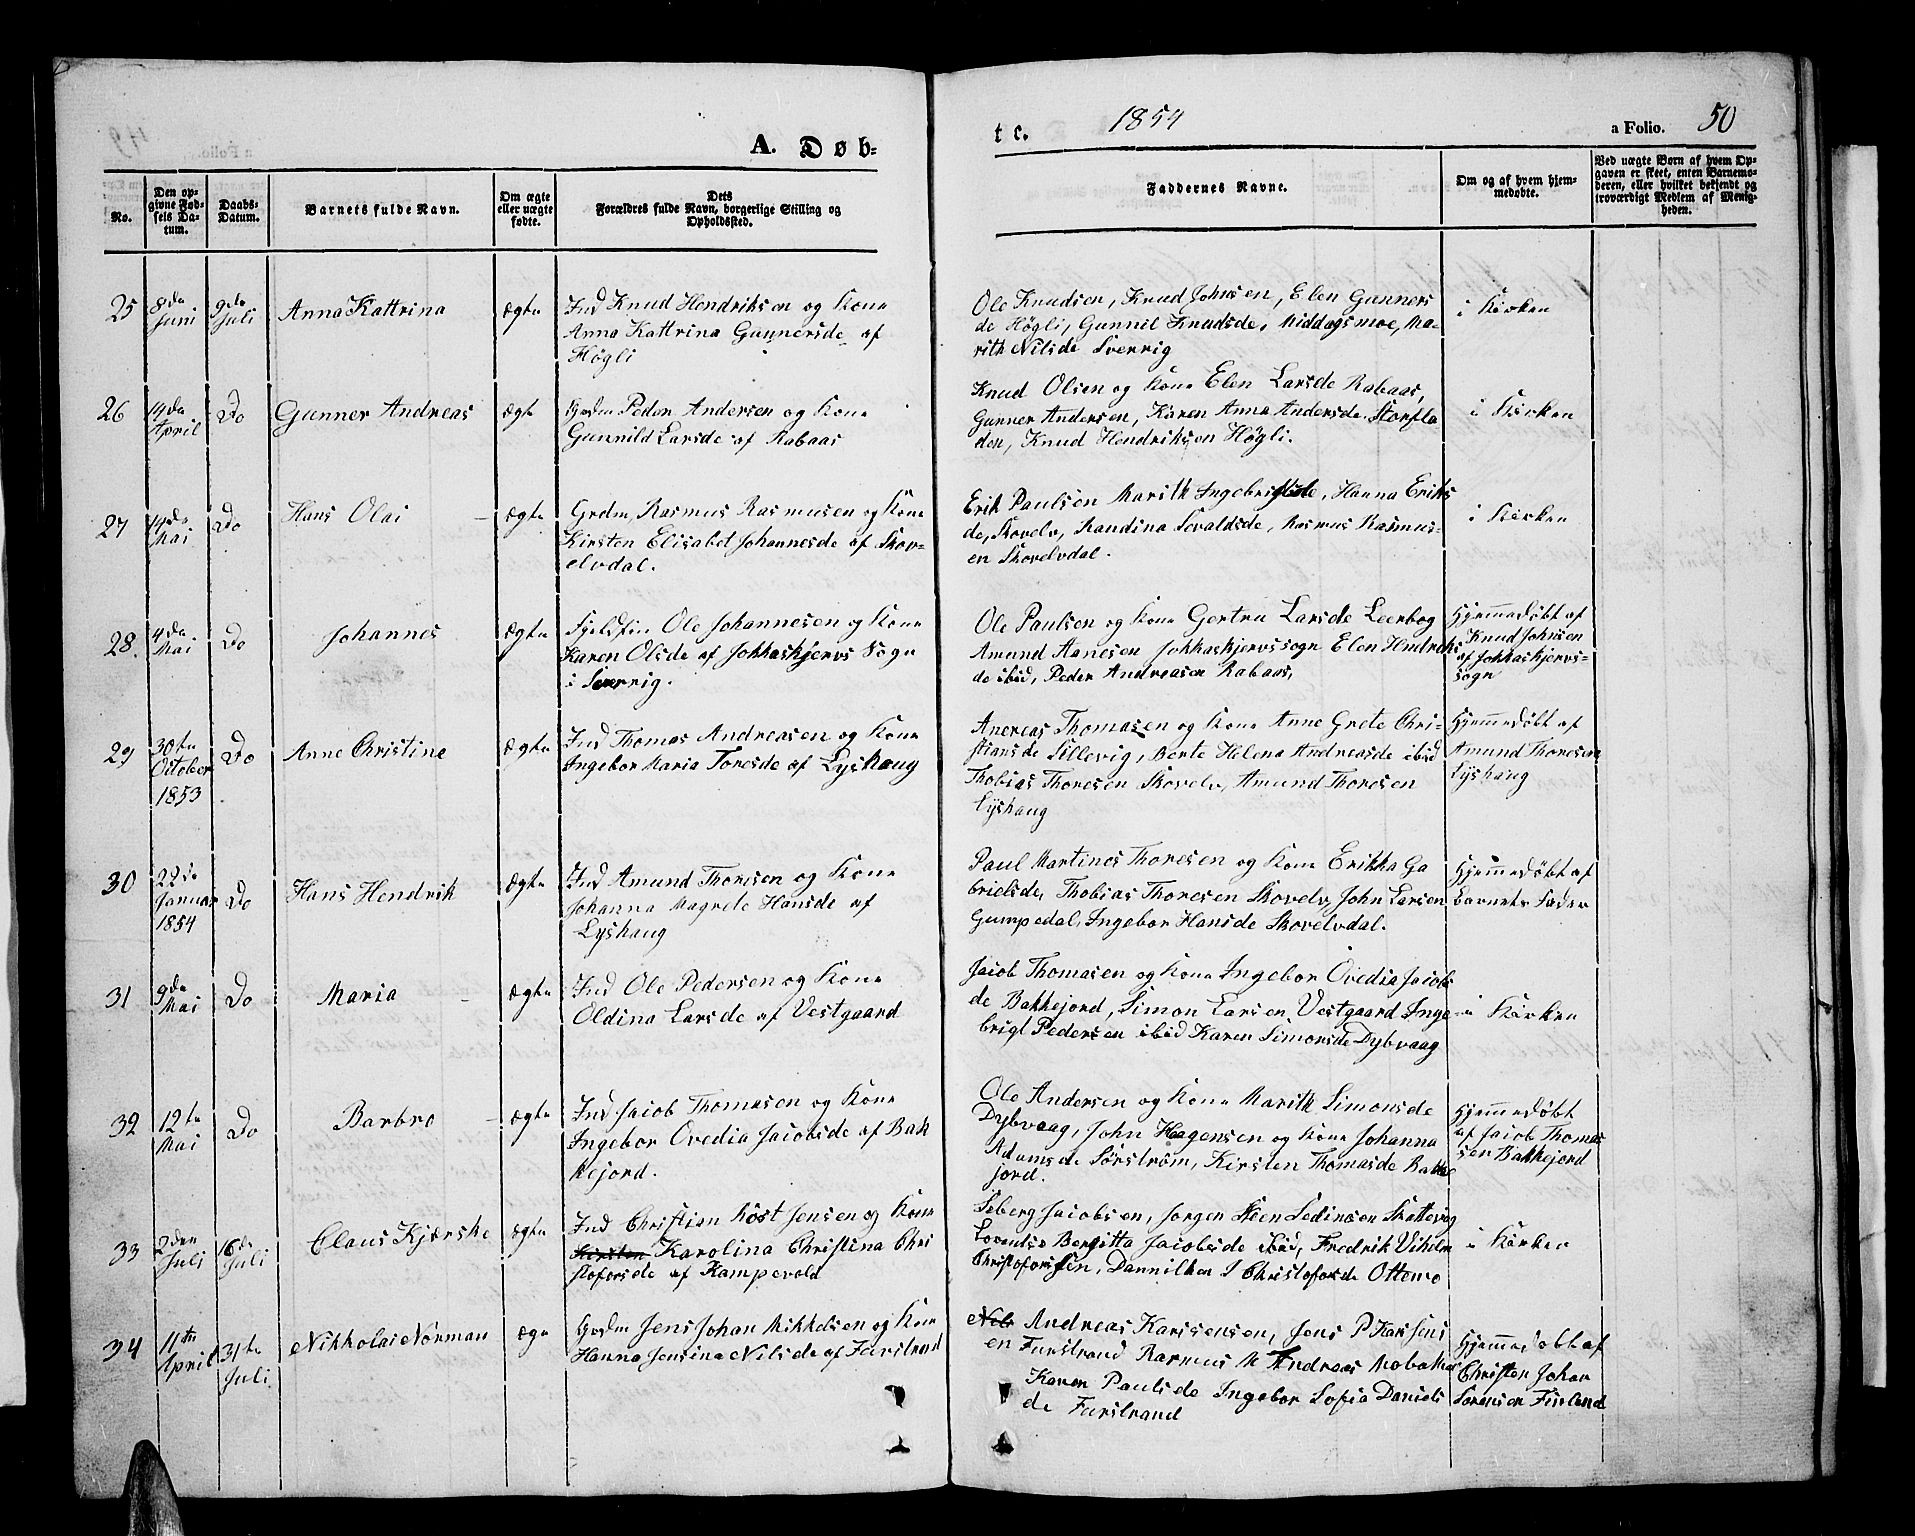 A. Døb-
t e.
1854
a Folio. 50
No.
Den op-
givne Fød-
sels Da-
tum.
Daabs-
Datum.
Barnets fulde Navn.
Om ægte
eller uægte
fødte.
Dets
Forældres fulde Navn, borgerlige Stilling og
Opholdssted.
Faddernes Navne.
Om og af hvem hjem-
medøbte.
Ved uægte Børn af hvem Op-
gaven er skeet, enten Barnemo-
deren, eller hvilket bekjendt og
troværdigt Medlem af Menig-
heden.
25
8de
Juni
9de
Juli
Anna Kattrina
ægte
Ind Knud Hendriksen og Kone
Anna Kattrina Gunnersde af
Høgli
Ole Knudsen, Knud Johnsen, Elen Gunners
de Høgli, Gunnil Knudsde, Middagsmoe, Ma-
rith Nilsde Sverrig
i Kirken
26
14de
April
Do
Gunner Andreas
ægte
Grdm Peder Andersen og Kone
Gunnild Larsde af Rabaas
Knud Olsen og Kone Elen Larsde Rabaas,
Gunner Andersen, Karen Anna Andersde Storslo
den, Knud Hendriksen Høgli.
i Kirken
27
14de
Mai
Do
Hans Olai
ægte
Grdm, Rasmus Rasmusen og Kone
Kirsten Elisabet Johannesde af Skov-
elvdal.
Erik Paulsen Marith Ingebrigtsde, Hanna Eriks
de, Skovelv, Randina Sevaldsde, Rasmus Rasmus-
en Skovelvdal.
i Kirken
28.
4de
Mai
Do
Johannes
ægte
Fjeldfin Ole Johannesen og Kone
Karen Olsde af Jokkaskjervs Sogn
i Sverrig.
Ole Paulsen og Kone Gertru Larsde Leerbog
Amund Aanesen Jokkaskjervssogn Elen Hendriks
de ibid, Peder Andreasen Rabaas,
Hjemmedøbt af
Knud Johnsen
af Jokkaskjervs-
sogn
29
30te
October
1853
Do
Anne Christine
ægte
Ind Thomas Andreasen og Kone
Ingebor Maria Toresde af Lyshaug
Anereas Thomasen og Kone Anne Grete Chri-
stiansde Sillevig, Berte Helena Andreasde ibid
Thobias Thoresen Skovelv, Amund Thoresen
Lyshaug
Hjemmedøbt af
Amund Thoresen
Lyshaug
30
22de
Januar
1854
Do
Hans Hendrik
ægte
Ind Amund Thoresen og Kone
Johanna Magrete Hansde af
Lyshaug
Paul Martines Thoresen og Kone Erikka Ga
brielsde, Thobias Thoresen Skovelv, John Larsen
Gumpedal, Ingebor Hansde Skovelvdal.
Hjemmedøbt af
Barnets Fader
31
9de
Mai
Do
Maria
ægte
Ind Ole Pedersen og Kone
Oldina Larsde af Vestgaard
Jacob Thomasen og Kone Ingebor Ovedia Jacobs
de Bakkejord, Simon Larsen Vestgaard Inge
brigt Pedersen ibid Karen Simonsde Dybvaag
i Kirken
32
12te
Mai
Do
Barbro
ægte
Ind Jacob Thomasen og Kone
Ingebor Ovedia Jacobsde af Bak
kejord.
Ole Andersen og Kone Marith Simonsde
Dybvaag, John Haagensen og Kone Johanna
Adamsde Sørstrøm, Kirsten Thomasde Bakke
jord.
Hjemmedøbt
af Jacob Thomas
sen Bakkejord
33
2den
Juli
16de
Juli
Claus Kjerske
ægte
Ind Christian Røst Jensen og Kone
Kirsten Karolina Christina Chri
stofersde af Kampevold
Seberg Jacobsen, Jørgen Steen Sedinesen Skattevig
Lorentse Bergitta Jacobsde ibid, Fredrik Vihelm
Christofersen, Dannilken J Christofersde Ottemo
i Kirken
34
11te
April
31te
Juli
Nikkolai Norman
ægte
Grdm Jens Johan Mikkelsen og Kone
Hanna Jensina Nilsde af Furstrand
Nils Andreas Karisensen, Jens P Hansens
en Furstrand Rasmus M Andreas Mobakke
Karen Paulsde Ingebor Sofia Daniels
de Furstrand
Hjemmedøbt af
Christen Johan
Sørensen Finland